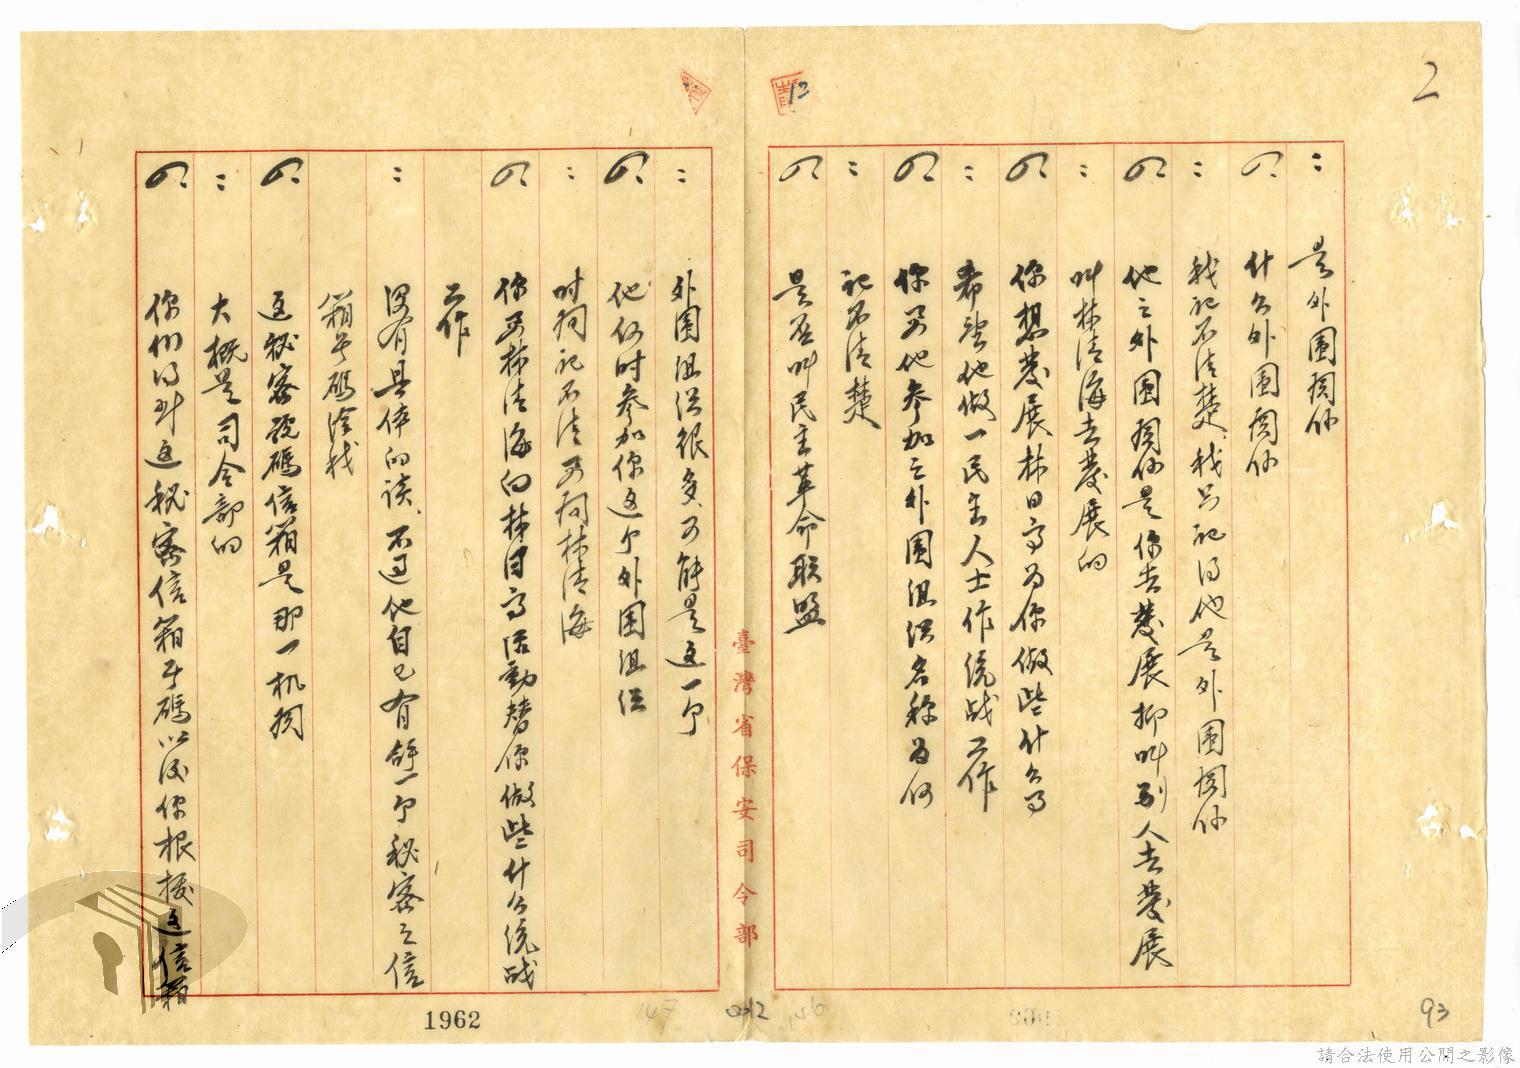 2
：是外围関係
问：什么外围関係
：我記不清楚，我只記得他是外围関係
问：他之外围関係是你去發展抑叫别人去發展
：叫林清海去發展的
问：你想發展林日高为你做些什么事
：希望他做一民主人士作统战工作
问：你要他参加之外围组织名称为何
：記不清楚
问：是否叫民主革命联盟
：外围组织很多，可能是这一个
问：他何时参加你这个外围组织
：时间記不清，可问林清海
问：你要林清海向林日高活動替你做些什么统战
工作
：没有具体的谈，不过他自己有一个秘密之信
箱号碼給我
问：这秘密號碼信箱是那一机関
：大概是司令部的
问：你们得到这秘密信箱号碼以後你根據这信箱
臺灣省保安司令部
12
1962
147
0012
146
93
請合法使用公開之影像